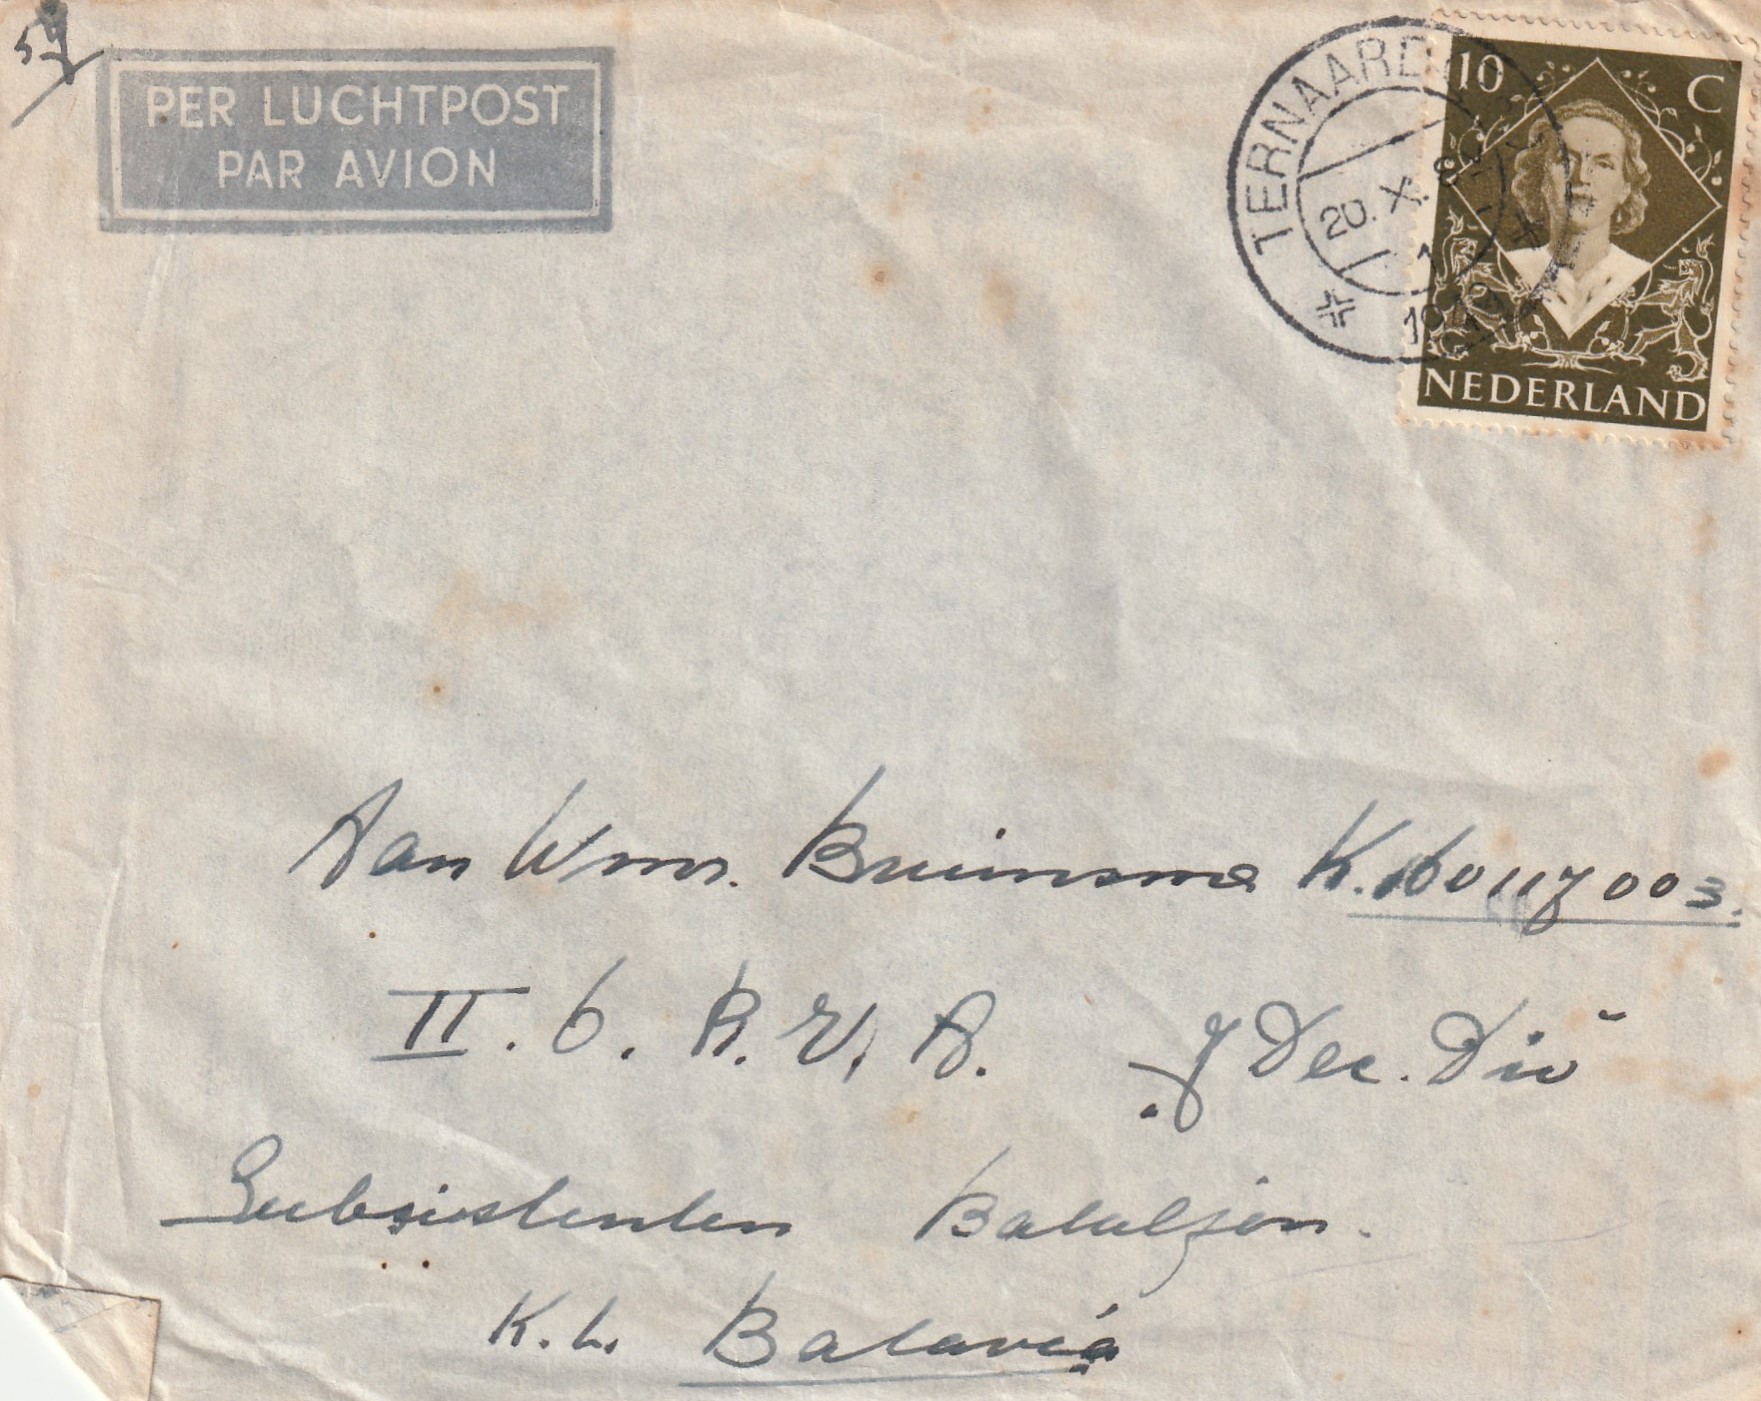 59
PER LUCHTPOST
PAR AVION
TERNAARD
20. X. 8
1
1949
10 C
NEDERLAND
Aan Wmr. Bruinsma K. 160117003.
II. 6. R. V. A. 7 Dec. Div
Subsistenten Bataljon.
K. L. Batavia